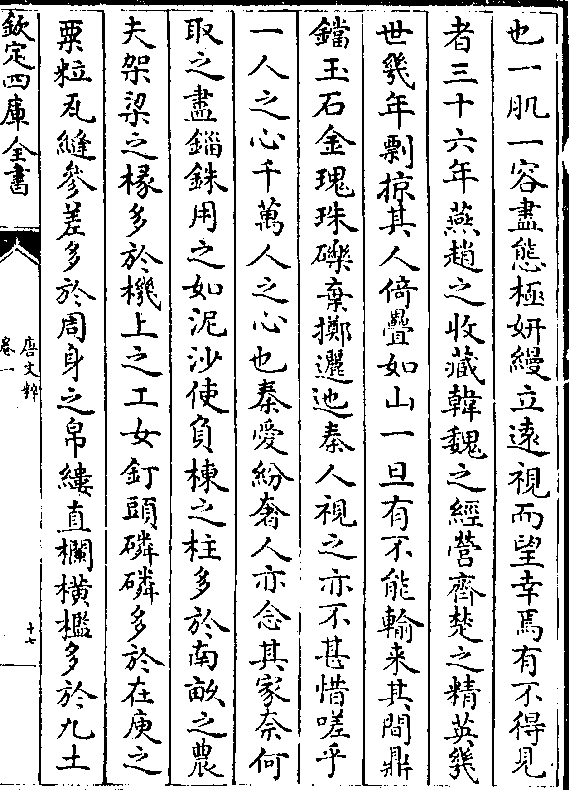 也一肌一容盡態極妍縵立遠視而望幸焉有不得見
者三十六年燕趙之收藏韓魏之經營齊楚之精英幾
世幾年剽掠其人倚疊如山一旦有不能輸来其間鼎
鐺玉石金瑰珠礫棄擲邐迆秦人視之亦不甚惜嗟乎
一人之心千萬人之心也秦愛紛奢人亦念其家奈何
取之盡錙銖用之如泥沙使負棟之柱多於南畝之農
夫架梁之椽多於機上之工女釘頭磷磷多於在庾之
粟粒瓦縫參差多於周身之帛縷直欄橫檻多於九土
欽定四庫全書
唐文粹
卷一
十七